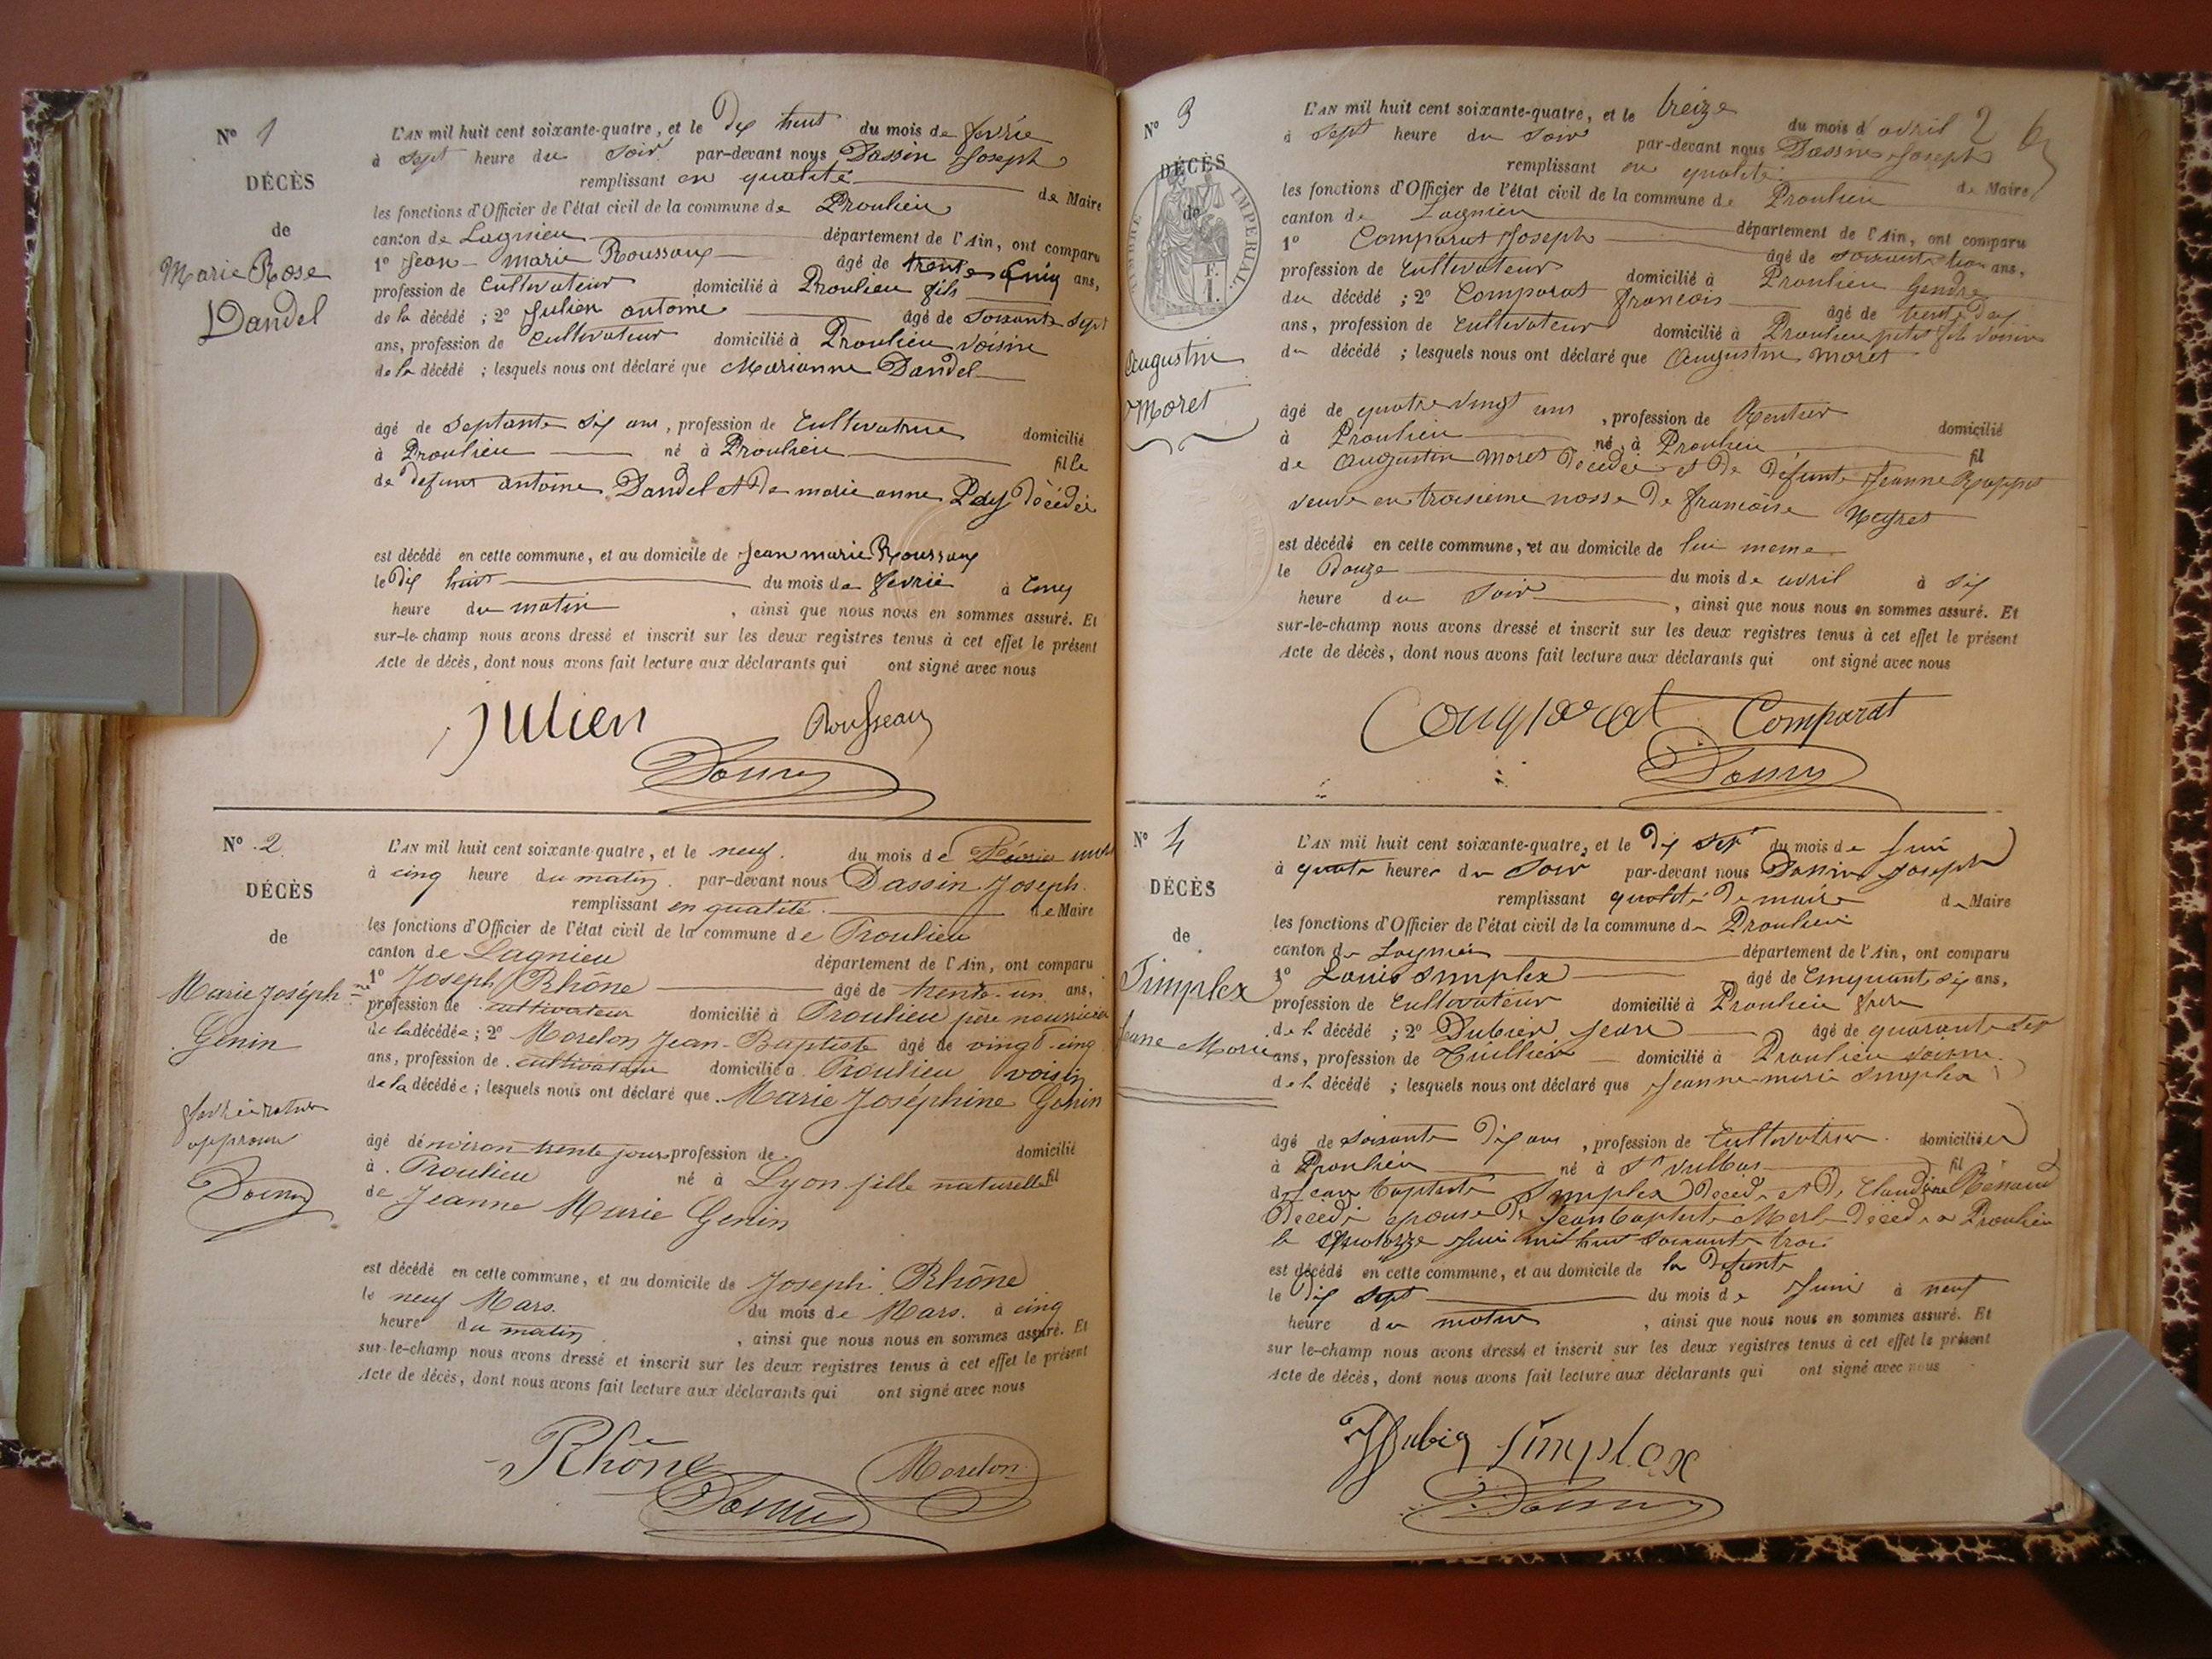 N° 1
DÉCÈS
de
Marie Rose
Dandel
L'AN mil huit cent soixante-quatre, et le dix huit du mois de fevrié
à sept heure du soir par-devant nous Dassin Joseph
remplissant en qualité de Maire
les fonctions d'Officier de l'état civil de la commune de Proulieu
canton de Lagnieu département de l'Ain, ont comparu
1° Jean-marie Rousseaux âgé de trente cinq ans,
profession de Cultivateur domicilié à Proulieu fils
de la décédé ; 2° Julien antoine âgé de soixante sept
ans, profession de Cultivateur domicilié à Proulieu voisin
de la décédé ; lesquels nous ont déclaré que Marianne Dandel
âgé de septante six ans, profession de Cultivatrice domicilié
à Proulieu né à Proulieu fille
de defunt antoine Dandel et de marie anne Pay décédée
est décédé en cette commune, et au domicile de Jean marie Rousseaux
le dix huit du mois de fevrié à cinq
heure du matin , ainsi que nous nous en sommes assuré. Et
sur-le-champ nous avons dressé et inscrit sur les deux registres tenus à cet effet le présent
Acte de décès, dont nous avons fait lecture aux déclarants qui ont signé avec nous
Julien Rousseau
N° 2
DÉCÈS
de
Marie Joséphine
Genin
L'AN mil huit cent soixante-quatre, et le neuf du mois de Février
à cinq heure du matin par-devant nous Dassin Joseph.
remplissant en qualité de Maire
les fonctions d'Officier de l'état civil de la commune de Proulieu
canton de Lagnieu département de l'Ain, ont comparu
1° Joseph Rhône âgé de trente-un ans,
profession de cultivateur domicilié à Proulieu père nourricier
de la décédée ; 2° Morelon Jean-Baptiste âgé de vingt-cinq
ans, profession de cultivateur domicilié à Proulieu voisin
de la décédée ; lesquels nous ont déclaré que Marie Joséphine Genin
âgé d'environ trente jours profession de domicilié
à Proulieu né à Lyon fille naturelle fil
de Jeanne Marie Genin
est décédé en cette commune, et au domicile de Joseph Rhône
le neuf Mars. du mois de Mars. à cinq
heure du matin , ainsi que nous nous en sommes assuré. Et
sur-le-champ nous avons dressé et inscrit sur les deux registres tenus à cet effet le présent
Acte de décès, dont nous avons fait lecture aux déclarants qui ont signé avec nous
Rhône Morelon
N° 3
DÉCÈS
de
TIMBRE IMPERIAL
Augustin
Moret
L'AN mil huit cent soixante-quatre, et le treize du mois d'avril 2
à sept heure du soir par-devant nous Dassin Joseph
remplissant en qualité de Maire
les fonctions d'Officier de l'état civil de la commune de Proulieu
canton de Lagnieu département de l'Ain, ont comparu
1° Comparat Joseph âgé de soixante trois ans,
profession de Cultivateur domicilié à Proulieu Gendre
du décédé ; 2° Comparat francois âgé de
ans, profession de Cultivateur domicilié à Proulieu petit fils voisin
du décédé ; lesquels nous ont déclaré que Augustin Moret
âgé de quatre vingt ans , profession de Rentier domicilié
à Proulieu né à Proulieu fil
de Augustin Moret décédé et de défunte Jeanne
veuve en troisième nosse de francoise Neyret
est décédé en cette commune, et au domicile de lui meme
le Douze du mois de avril à six
heure du soir , ainsi que nous nous en sommes assuré. Et
sur-le-champ nous avons dressé et inscrit sur les deux registres tenus à cet effet le présent
Acte de décès, dont nous avons fait lecture aux déclarants qui ont signé avec nous
Comparat Comparat
N° 4
DÉCÈS
de
Simplex
Jeane Marie
L'AN mil huit cent soixante-quatre, et le dix sept du mois de Juin
à quatre heures du soir par-devant nous Dassin Joseph
remplissant qualité de maire de Maire
les fonctions d'Officier de l'état civil de la commune de Proulieu
canton de Lagnieu département de l'Ain, ont comparu
1° Louis Simplex âgé de Cinquante six ans,
profession de Cultivateur domicilié à Proulieu frere
de la décédé ; 2° Dubier Jean âgé de quarante sept
ans, profession de domicilié à Proulieu voisin
de la décédé ; lesquels nous ont déclaré que Jeanne-marie Simplex
âgé de soixante dix ans , profession de Cultivatrice domiciliée
à Proulieu né à St Vulbas fil
de Jean baptiste Simplex décédé et de Claudine Renaud
décédé epouse de Jean baptiste Merle décédé a Proulieu
le quatorze Juin mil huit soixante trois
est décédé en cette commune, et au domicile de la defunte
le dix sept du mois de Juin à neuf
heure du matin , ainsi que nous nous en sommes assuré. Et
sur-le-champ nous avons dressé et inscrit sur les deux registres tenus à cet effet le présent
Acte de décès, dont nous avons fait lecture aux déclarants qui ont signé avec nous
Simplex